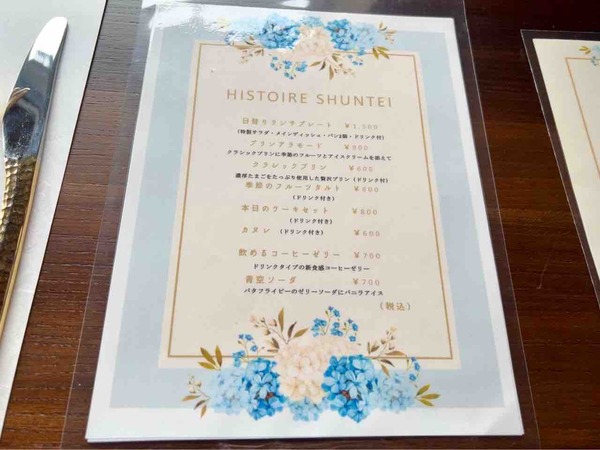 HISTOIRE SHUNTEI
日替りランチプレート ¥1,500
(特製サラダ・メインディッシュ・パン2種・ドリンク付)
プリンアラモード ¥900
クラシックプリンに季節のフルーツとアイスクリームを添えて
クラシックプリン ¥600
濃厚たまごをたっぷり使用した贅沢プリン (ドリンク付)
季節のフルーツタルト ¥800
(ドリンク付き)
本日のケーキセット ¥800
(ドリンク付き)
カヌレ (ドリンク付き) ¥600
飲めるコーヒーゼリー ¥700
ドリンクタイプの新食感コーヒーゼリー
青空ソーダ ¥700
バタフライピーのゼリーソーダにバニラアイス
(税込)